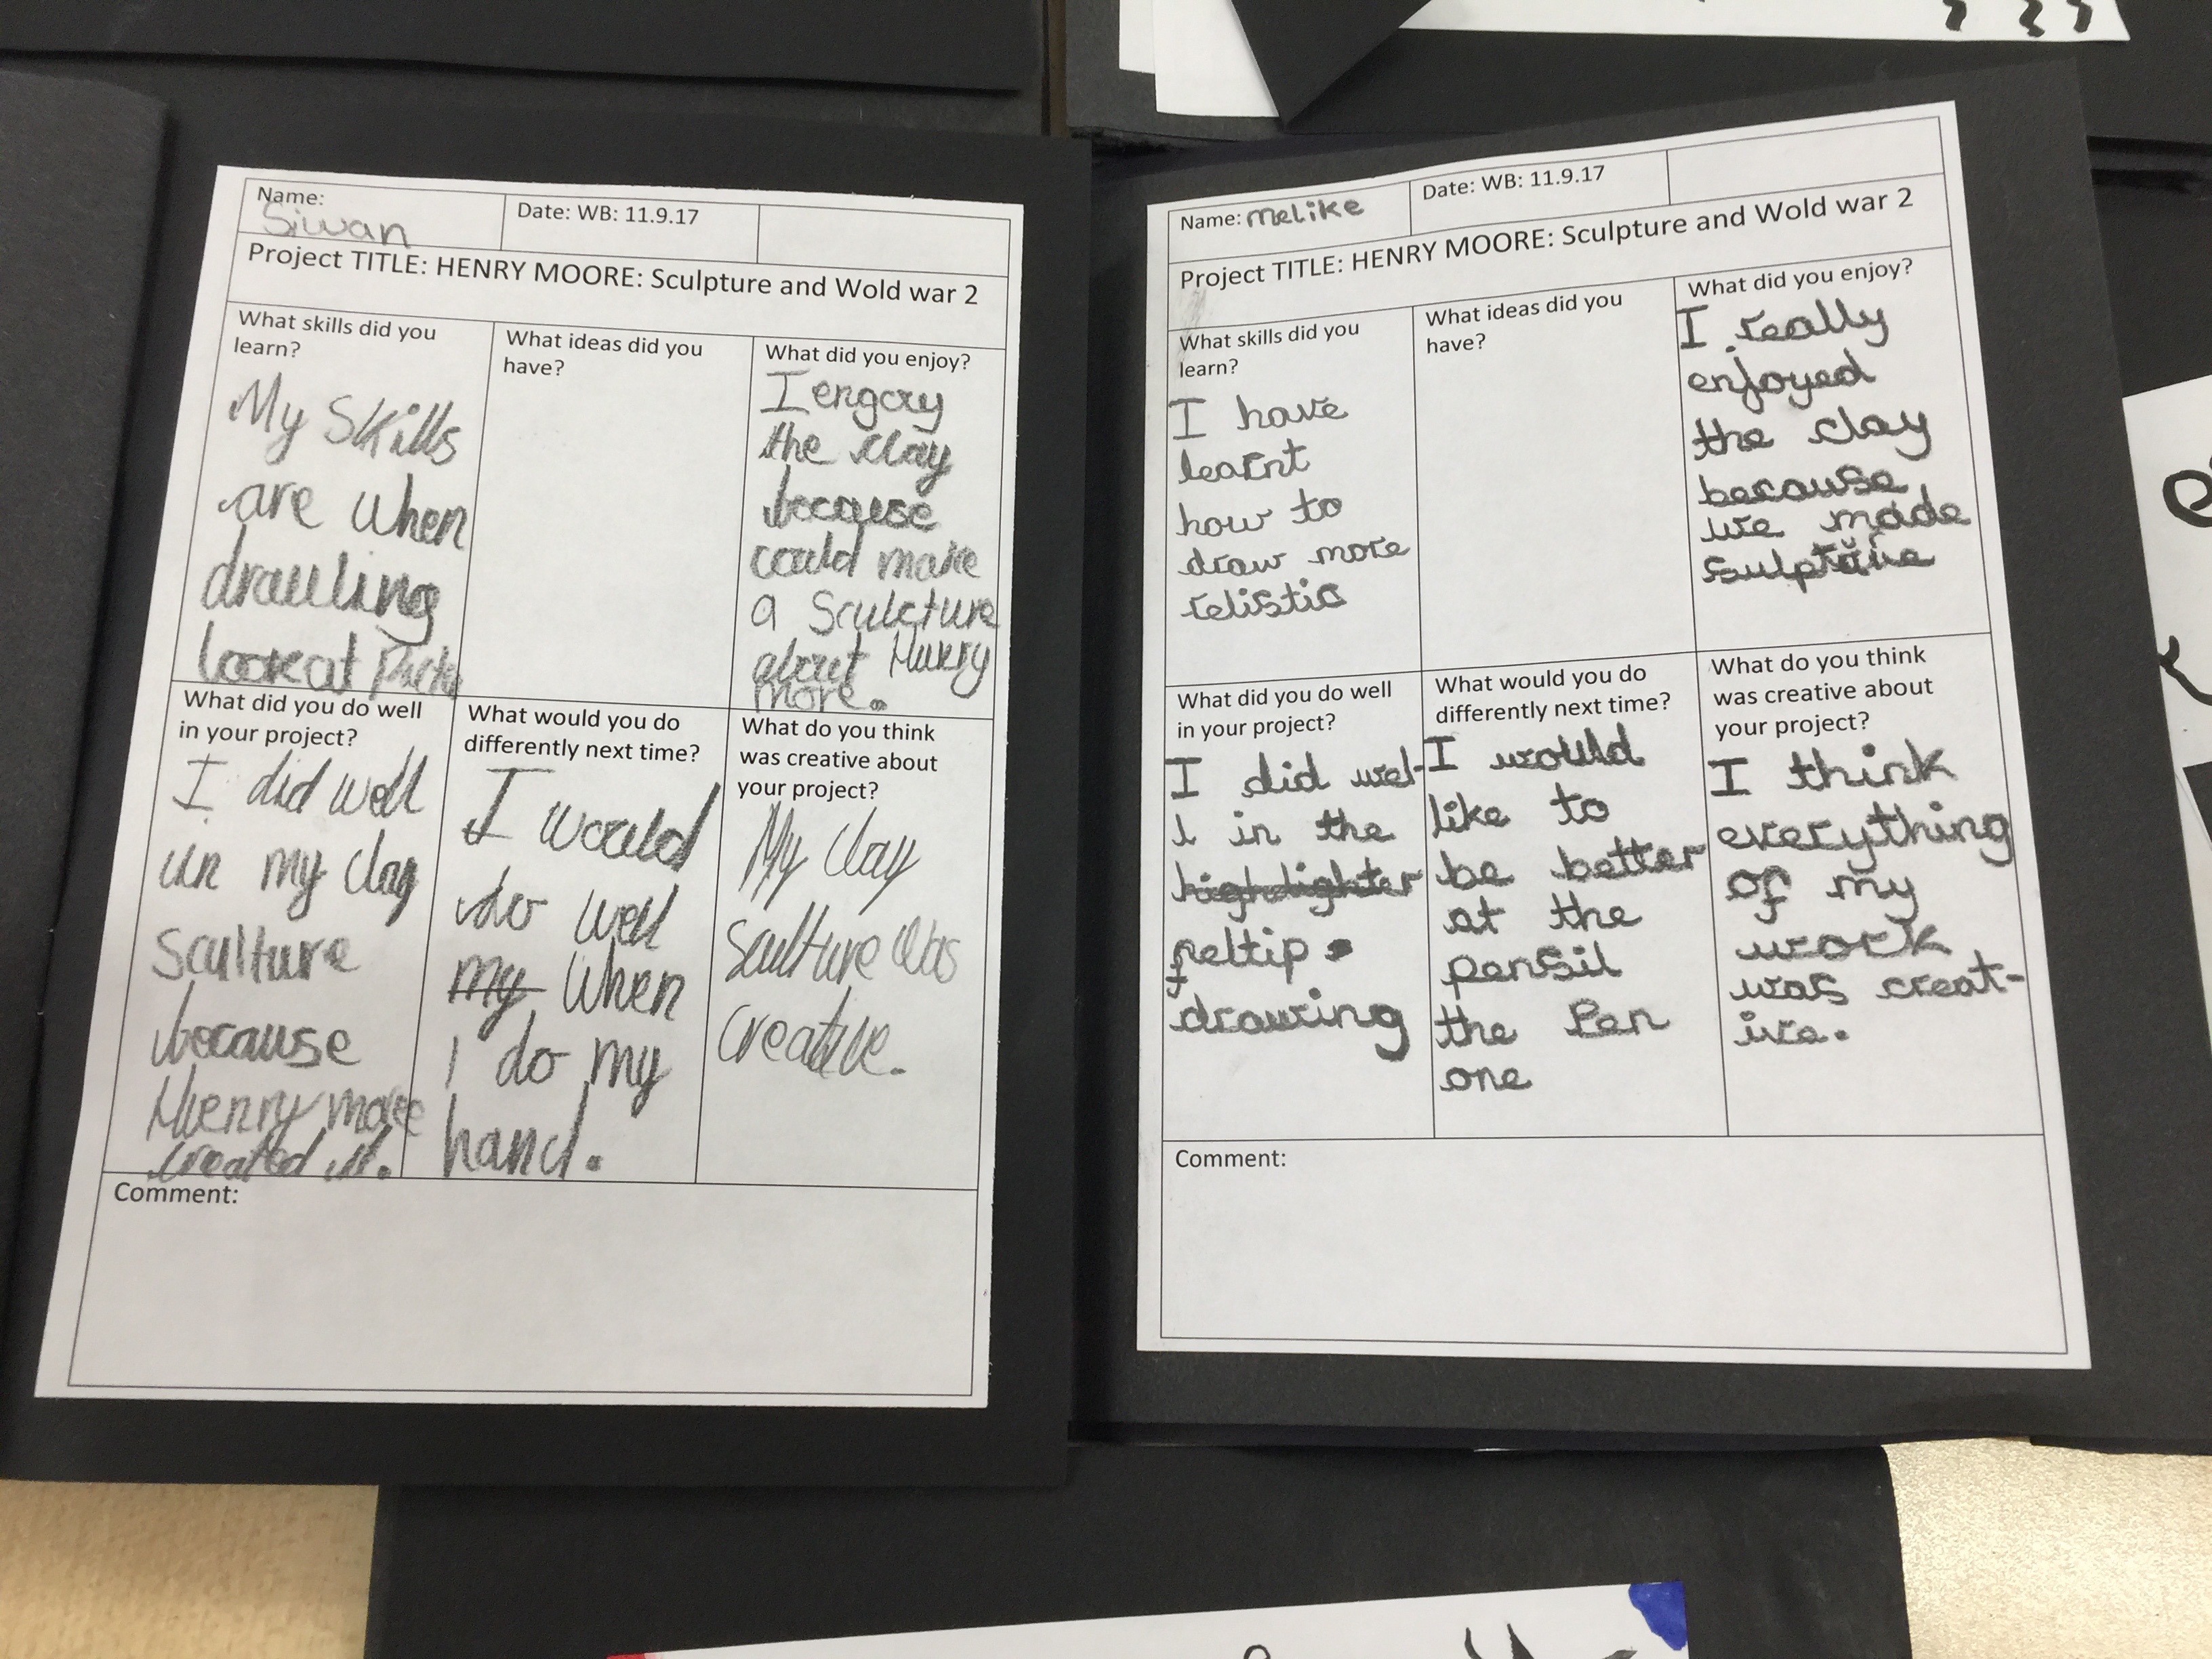 Name:
Siwan
Date: WB: 11.9.17
Project TITLE: HENRY MOORE: Sculpture and Wold war 2
What skills did you
learn?
My Skills
are when
drauling
look at
What ideas did you
have?
What did you enjoy?
I engoay
the clay
because
could make
a Sculcture
about Hunry
more.
What did you do well
in your project?
I did well
in my clay
Sculture
because
Huenry more
created it.
What would you do
differently next time?
I would
do well
my when
I do my
hand.
What do you think
was creative about
your project?
My clay
Sculture was
creative.
Comment:
Name: melike
Date: WB: 11.9.17
Project TITLE: HENRY MOORE: Sculpture and Wold war 2
What skills did you
learn?
I have
learnt
how to
draw more
relistic
What ideas did you
have?
What did you enjoy?
I really
enjoyed
the clay
because
we made
What did you do well
in your project?
I did wel-
l in the
highlighter
feltip
drawing
What would you do
differently next time?
I would
like to
be better
at the
pensil
the Pen
one
What do you think
was creative about
your project?
I think
everything
of my
work
was creat-
ive.
Comment: